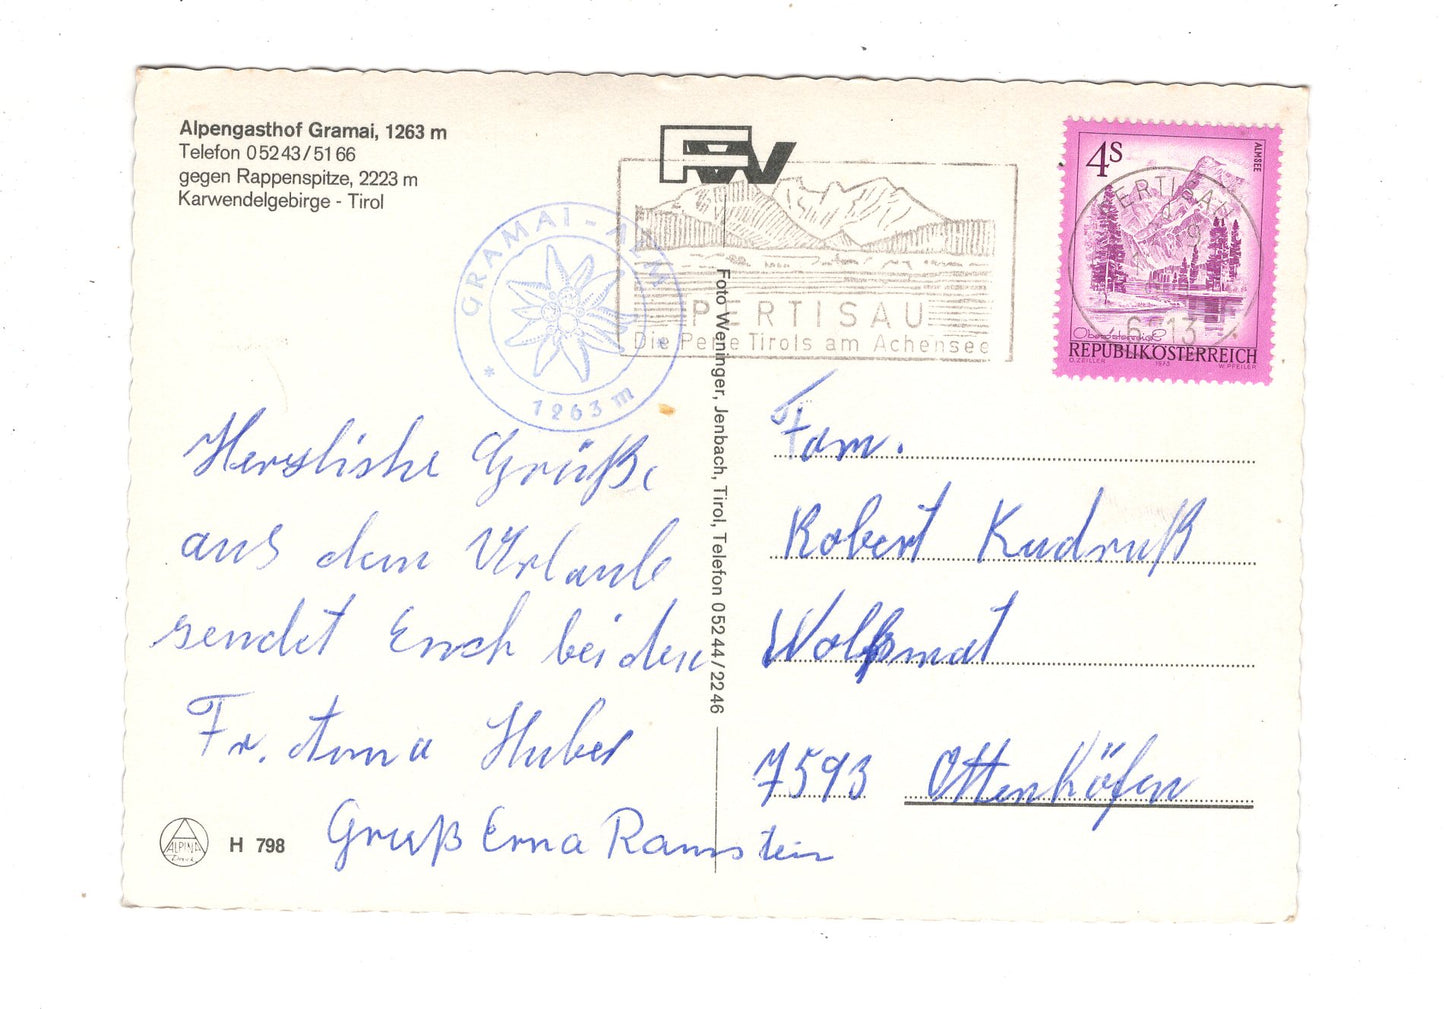 Alpengasthof Gramai, 1263 m
Telefon 0 52 43 / 51 66
gegen Rappenspitze, 2223 m
Karwendelgebirge - Tirol
FW
GRAMAI - ALM
* 1263 m
PERTISAU
Die Perle Tirols am Achensee
4S
ALMSEE
PERTISAU
6213
Oberösterreich
REPUBLIK ÖSTERREICH
O. ZEILLER 1973 W. PFEILER
Foto Weninger, Jenbach, Tirol, Telefon 0 52 44 / 22 46
Herzliche Grüße
aus dem Urlaub
sendet Euch beiden
Fr. Anna Huber
Gruß Erna Ramstein
Fam.
Robert Kudruß
Wolfsmat
7593 Ottenhöfen
ALPINA
H 798